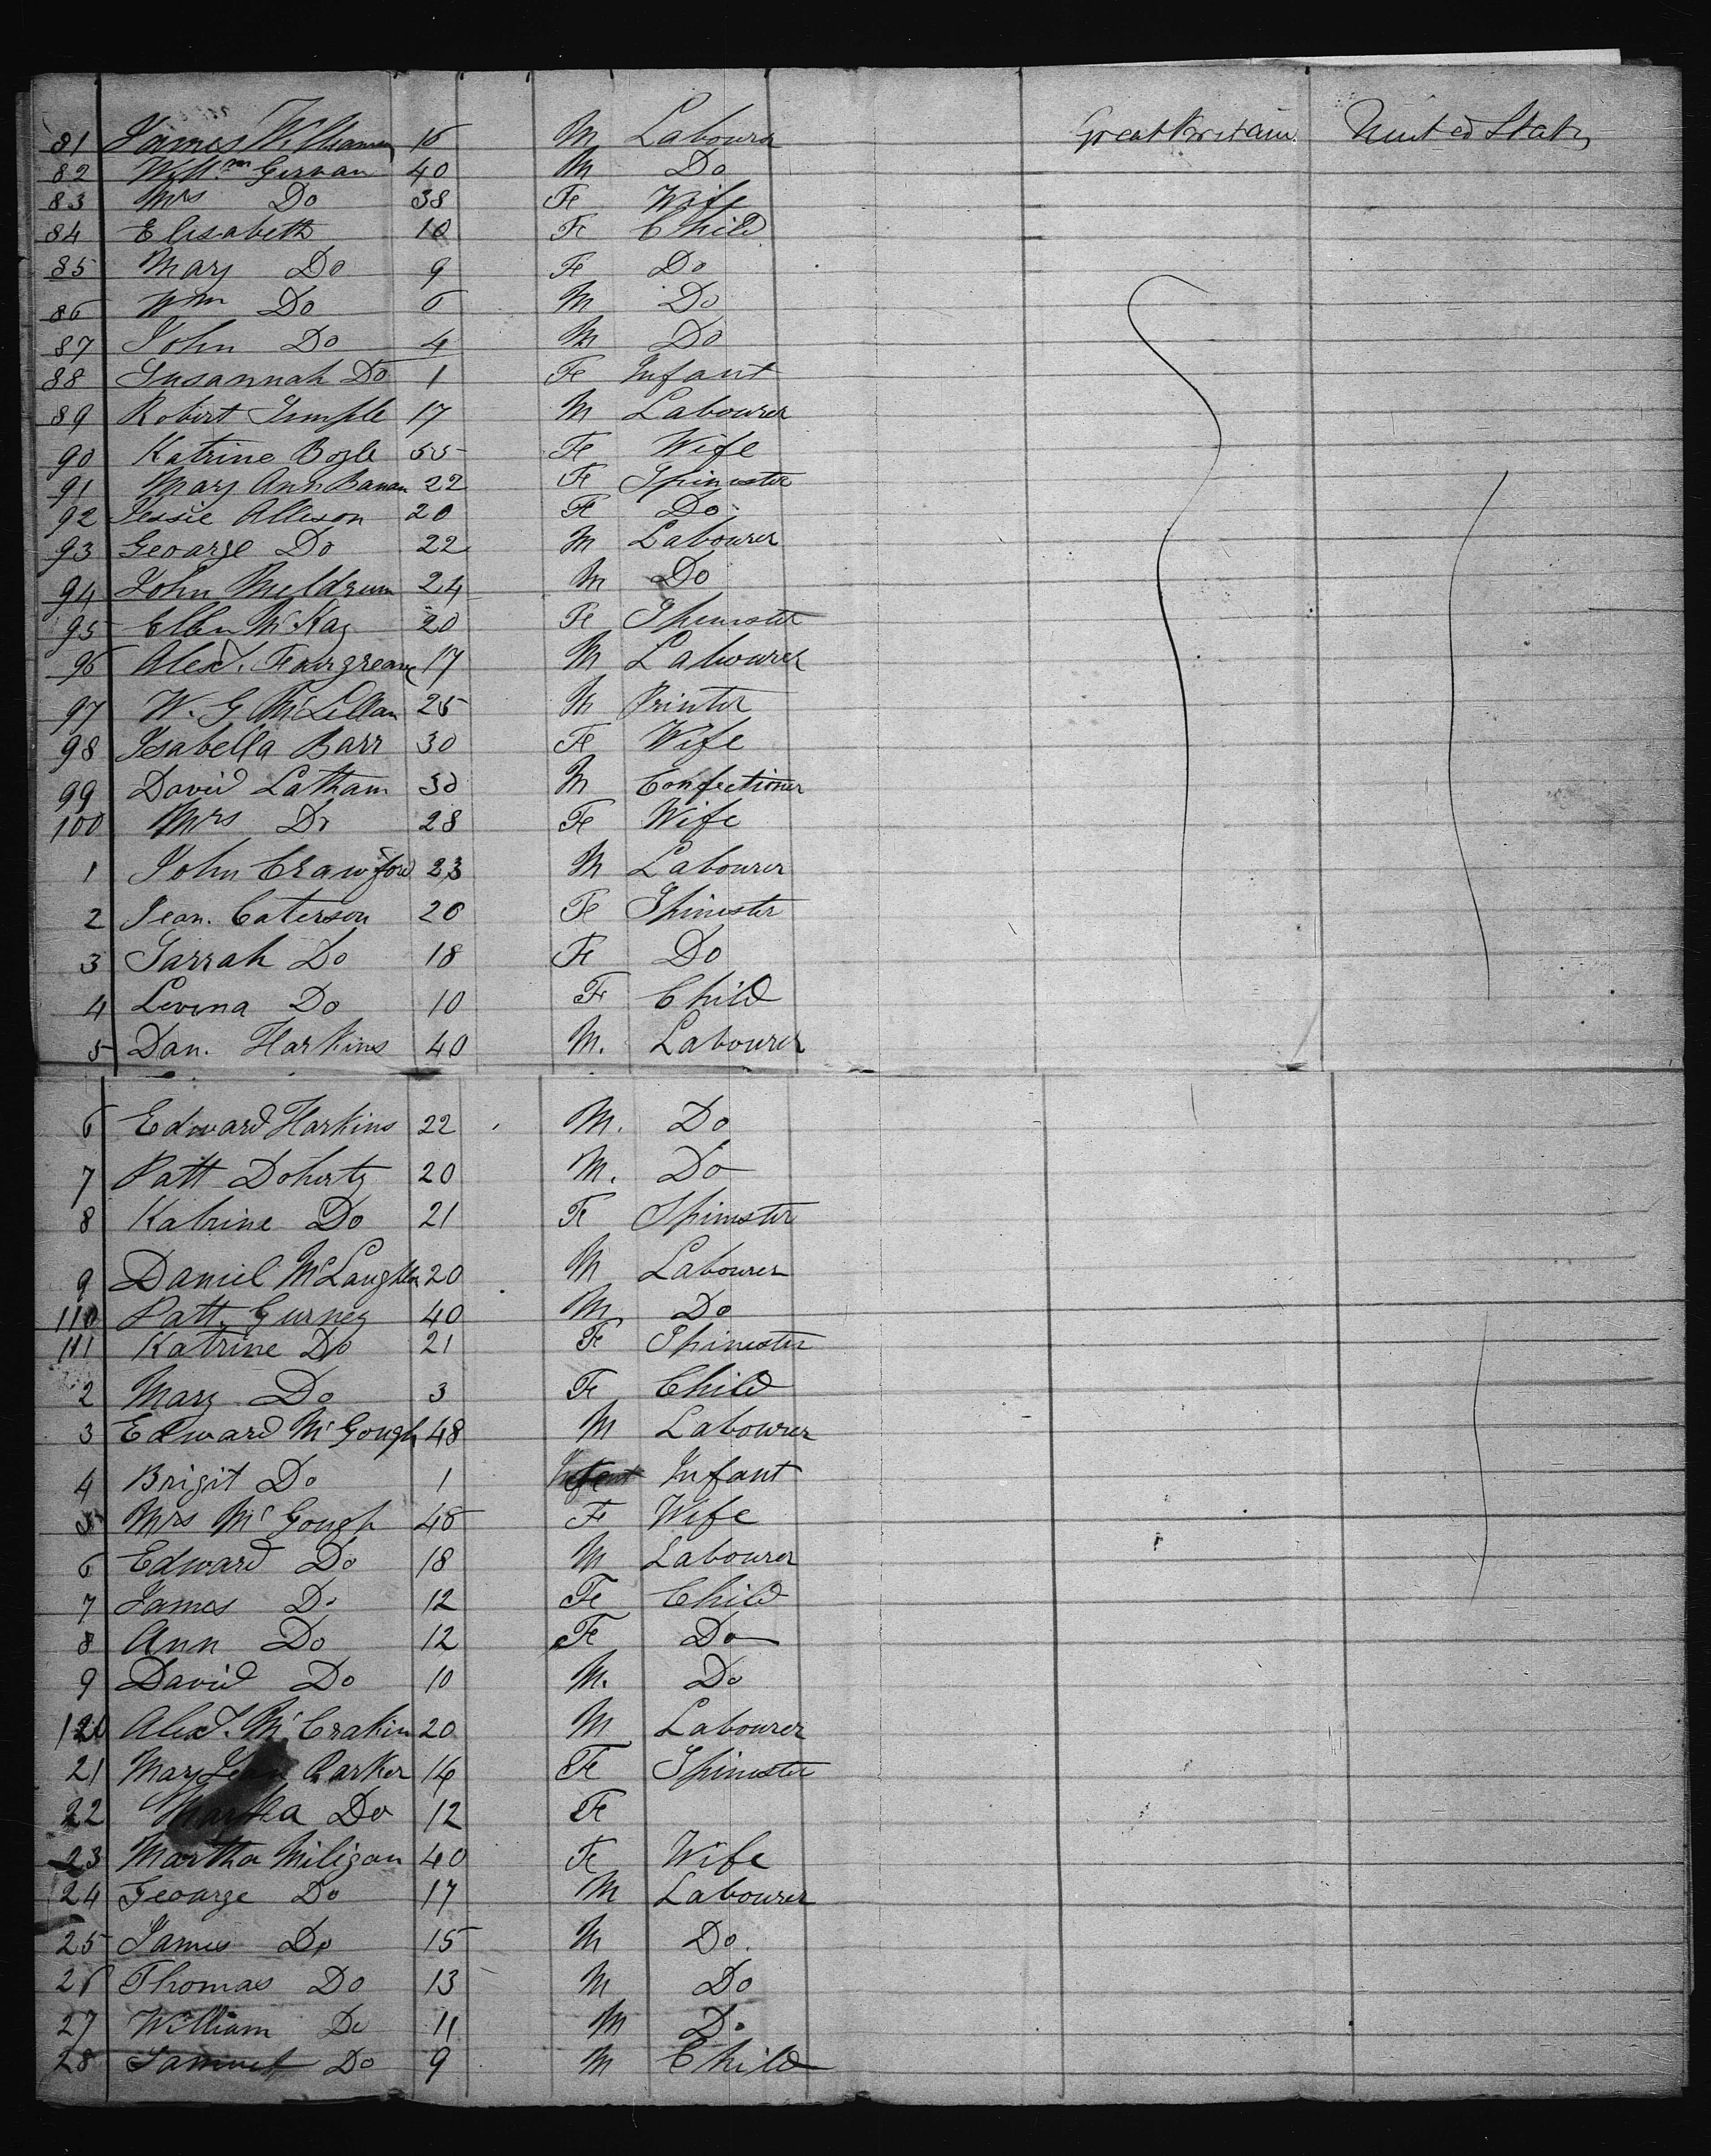 81 James Williamson 16 M Labourer Great Britain United States
82 Willm Girvan 40 M Do
83 Mrs Do 38 Fe Wife
84 Elisabeth 10 Fe Child
85 Mary Do 9 Fe Do
86 Wm Do 6 M Do
87 John Do 4 M Do
88 Susannah Do 1 Fe Infant
89 Robert Temple 17 M Labourer
90 Katrine Bogle 55 Fe Wife
91 Mary Ann 22 Fe Spinster
92 Jessie Alleson 20 Fe Do
93 Geoarge Do 22 M Labourer
94 John Meldrum 24 M Do
95 Ellen McKay 20 Fe Spinster
96 Alexr. Fairgreave 17 M Labourer
97 W. G McLellan 25 M Printer
98 Isabella Barr 30 Fe Wife
99 David Latham 30 M Confectioner
100 Mrs Do 28 Fe Wife
1 John Crawford 23 M Labourer
2 Jean. Caterson 20 Fe Spinster
3 Sarrah Do 18 Fe Do
4 Levina Do 10 Fe Child
5 Dan. Harkins 40 M. Labourer
6 Edward Harkins 22 M. Do
7 Patt Doherty 20 M. Do
8 Katrine Do 21 Fe Spinster
9 Daniel McLaughlin 20 M Labourer
110 Patt. Gurney 40 M Do
111 Katrine Do 21 Fe Spinster
2 Mary Do 3 Fe Child
3 Edward McGough 48 M Labourer
4 Brigit Do 1 Infant Infant
5 Mrs McGough 46 Fe Wife
6 Edward Do 18 M Labourer
7 James Do 12 Fe Child
8 Ann Do 12 Fe Do
9 David Do 10 M. Do
120 Alexr. McCrakin 20 M Labourer
21 Mary Jean Parker 14 Fe Spinster
22 Martha Do 12 Fe
23 Martha Miligan 40 Fe Wife
24 Geoarge Do 17 M Labourer
25 James Do 15 M Do.
26 Thomas Do 13 M Do
27 William Do 11 M Do
28 Samuel Do 9 M Child